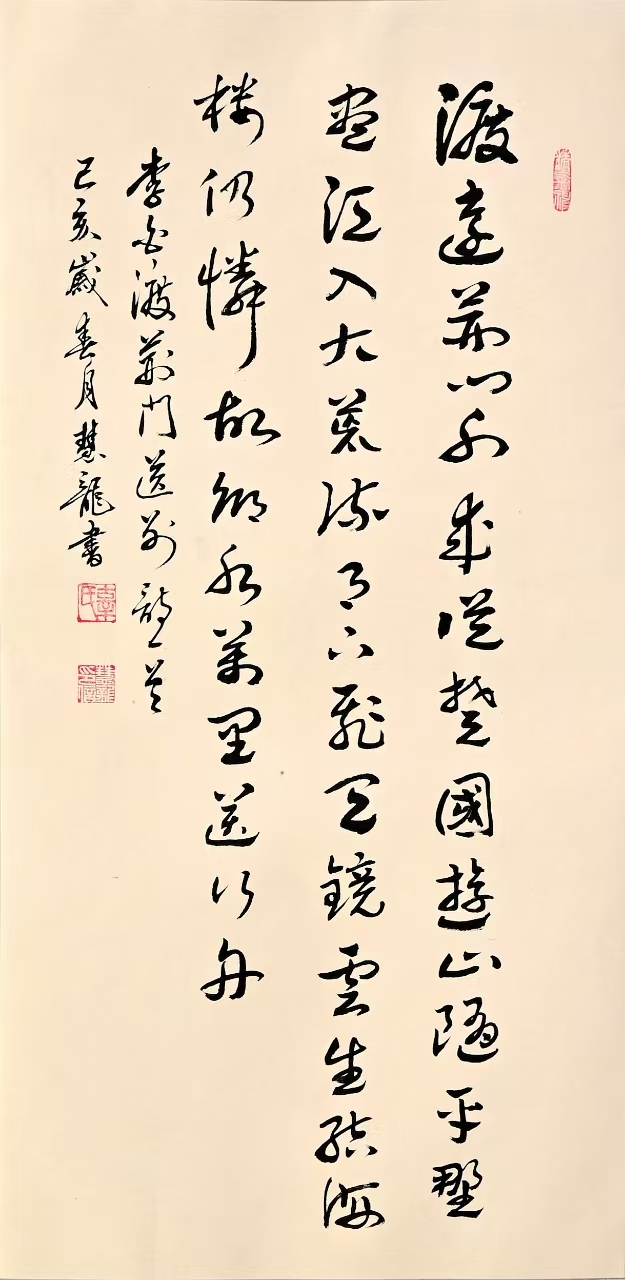 渡遠荊門外來從楚國遊山隨平野
盡江入大荒流月下飛天鏡雲生結海
樓仍憐故鄉水萬里送行舟
李白渡荊門送別詩一首
己亥歲春月慧龍書